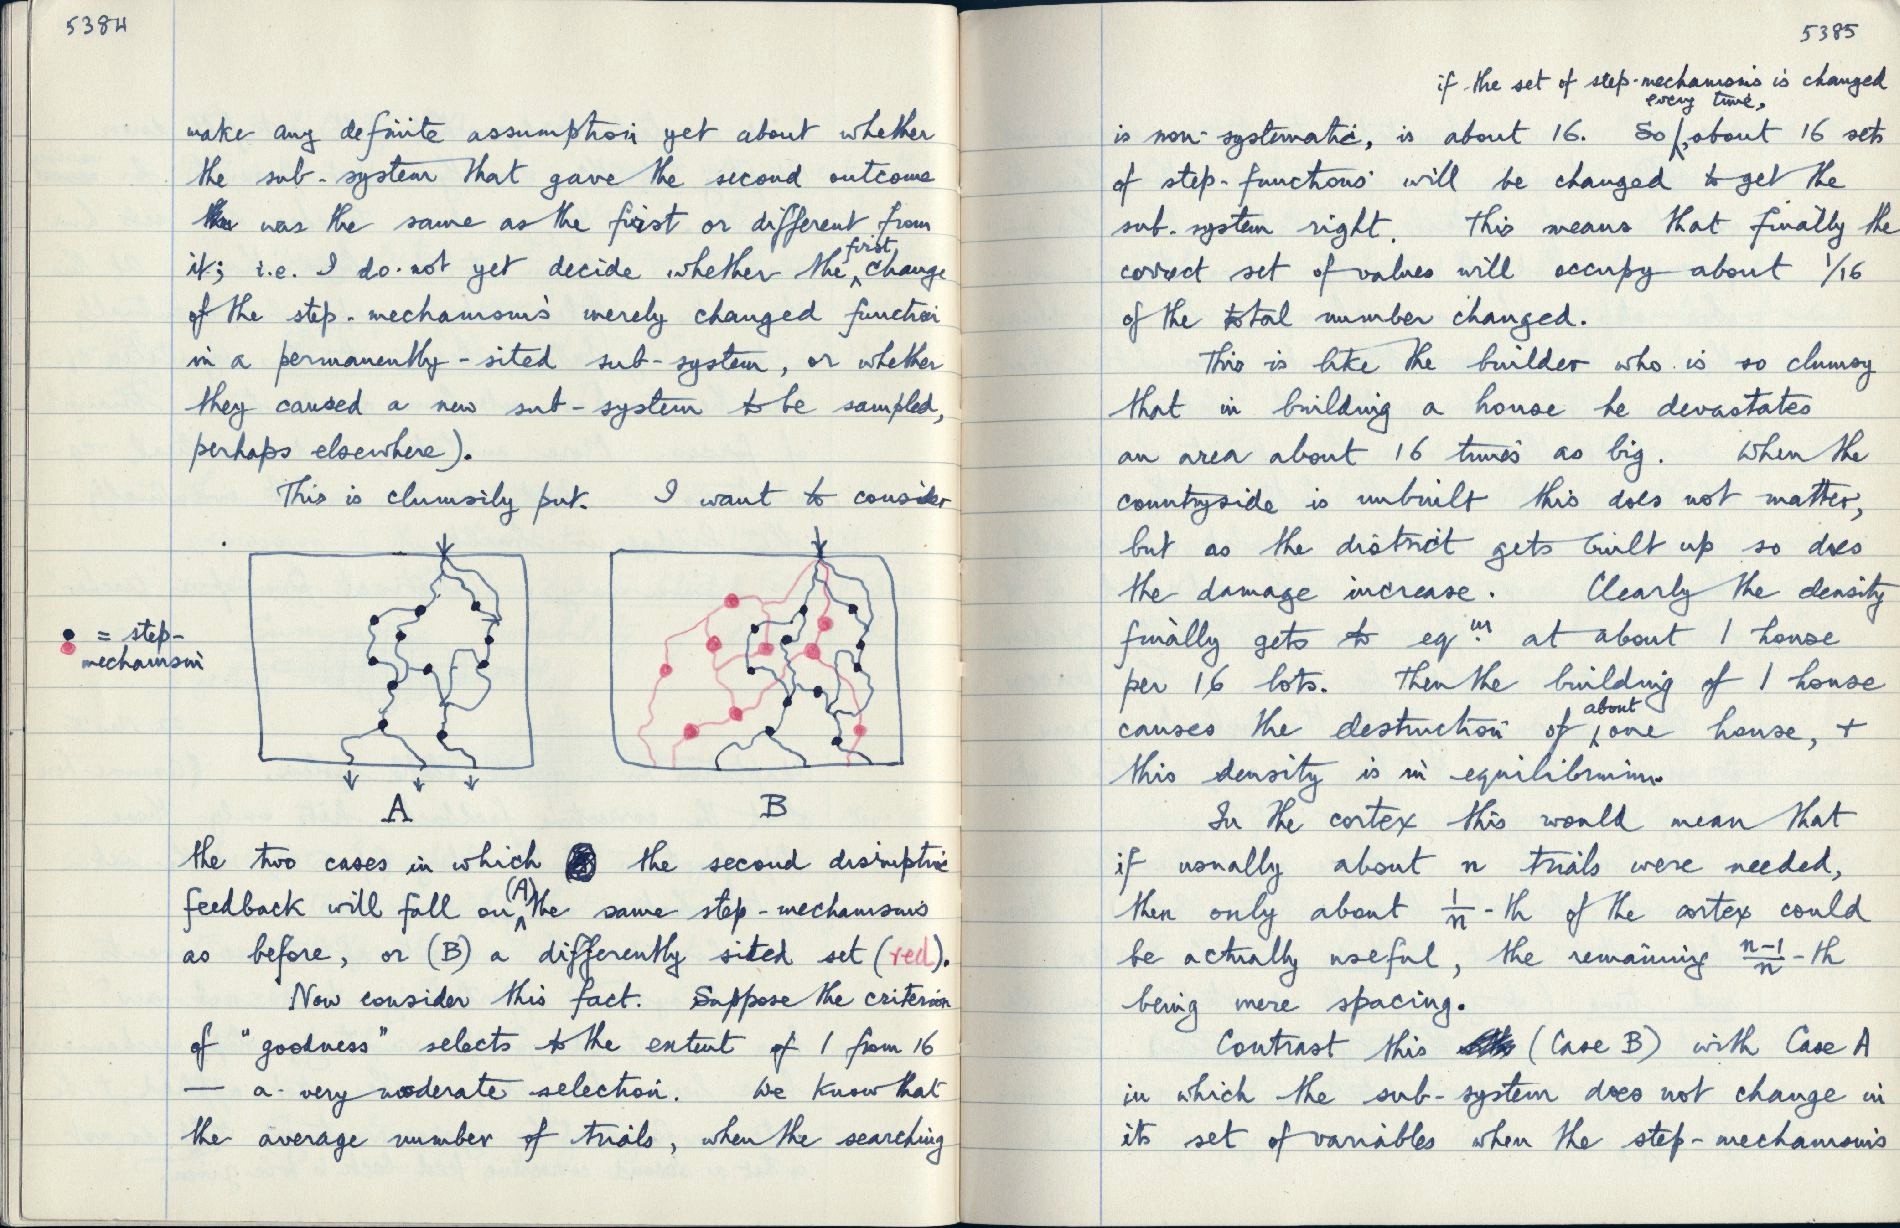 5384
make any definite assumption yet about whether
the sub-system that gave the second outcome
was the same as the first or different from
it; i.e. I do not yet decide whether the first change
of the step-mechanisms merely changed function
in a permanently-sited sub-system, or whether
they caused a new sub-system to be sampled,
perhaps elsewhere).
This is clumsily put. I want to consider
= step-
mechanism
A
B
the two cases in which the second disruptive
feedback will fall on (A) the same step-mechanisms
as before, or (B) a differently sited set (red).
Now consider this fact. Suppose the criterion
of "goodness" selects to the extent of 1 from 16
— a very moderate selection. We know that
the average number of trials, when the searching
5385
is non-systematic, is about 16. So, if the set of step-mechanisms is changed every time, about 16 sets
of step-functions will be changed to get the
sub-system right. This means that finally the
correct set of values will occupy about 1/16
of the total number changed.
This is like the builder who is so clumsy
that in building a house he devastates
an area about 16 times as big. When the
countryside is unbuilt this does not matter,
but as the district gets built up so does
the damage increase. Clearly the density
finally gets to eqm at about 1 house
per 16 lots. Then the building of 1 house
causes the destruction of about one house, +
this density is in equilibrium.
In the cortex this would mean that
if usually about n trials were needed,
then only about 1/n-th of the cortex could
be actually useful, the remaining n-1/n-th
being mere spacing.
Contrast this (Case B) with Case A
in which the sub-system does not change in
its set of variables when the step-mechanisms